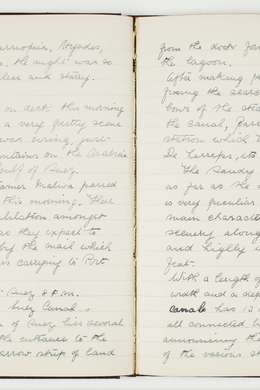 the night was so
and starry.
on deck this morning
a very pretty scene
was rising just
mountains on the Arabia
Gulf of Suez.
passed
this morning. Her
amongst
as they expect to
by the mail which
is carrying to Port
Suez 8 P.M.
Suez Canal
of Suez lies several
the entrance to the
arrow strip of land
from the dock
the lagoon.
After making
fixing the sear
bows of the stea
the canal, pass
station which
De
The Sandy
as far as the
is very peculiar
main character
scenery along
and highly
feat.
With a length of
width and a dep
canal has 13
all connected
announcing the
of the various s